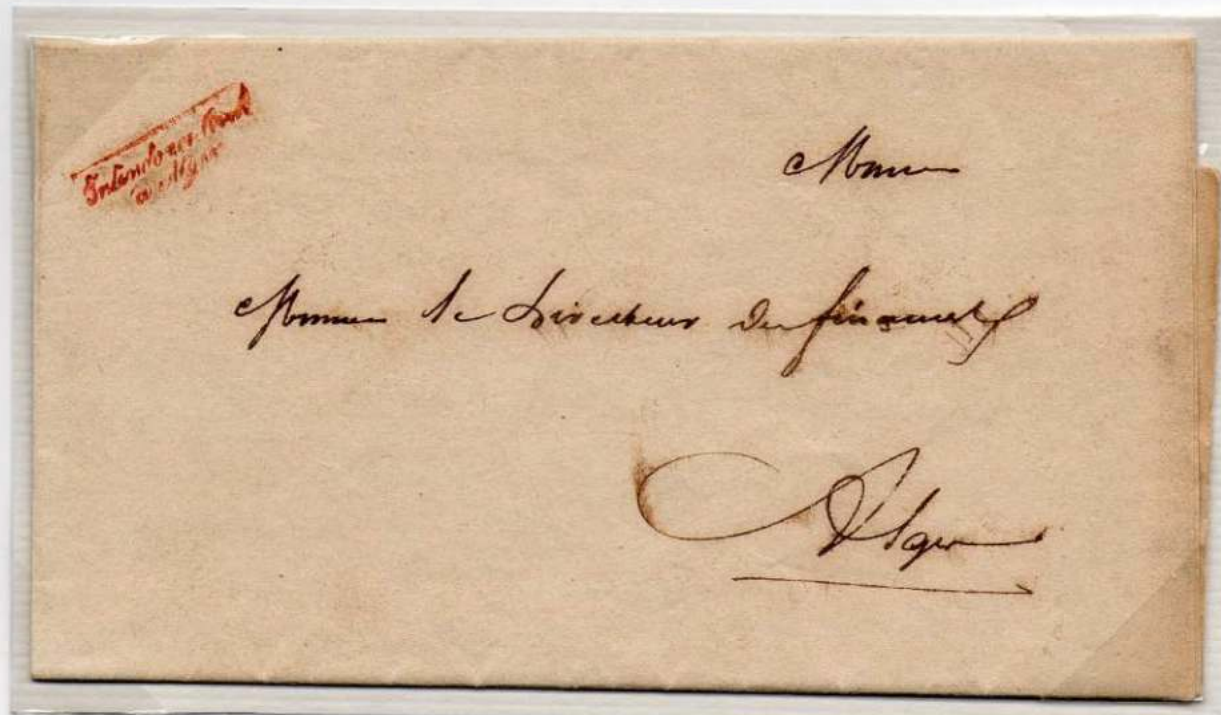 Intendance Civile
d'Alger
Monsieur
Monsieur le Directeur des finances
Alger